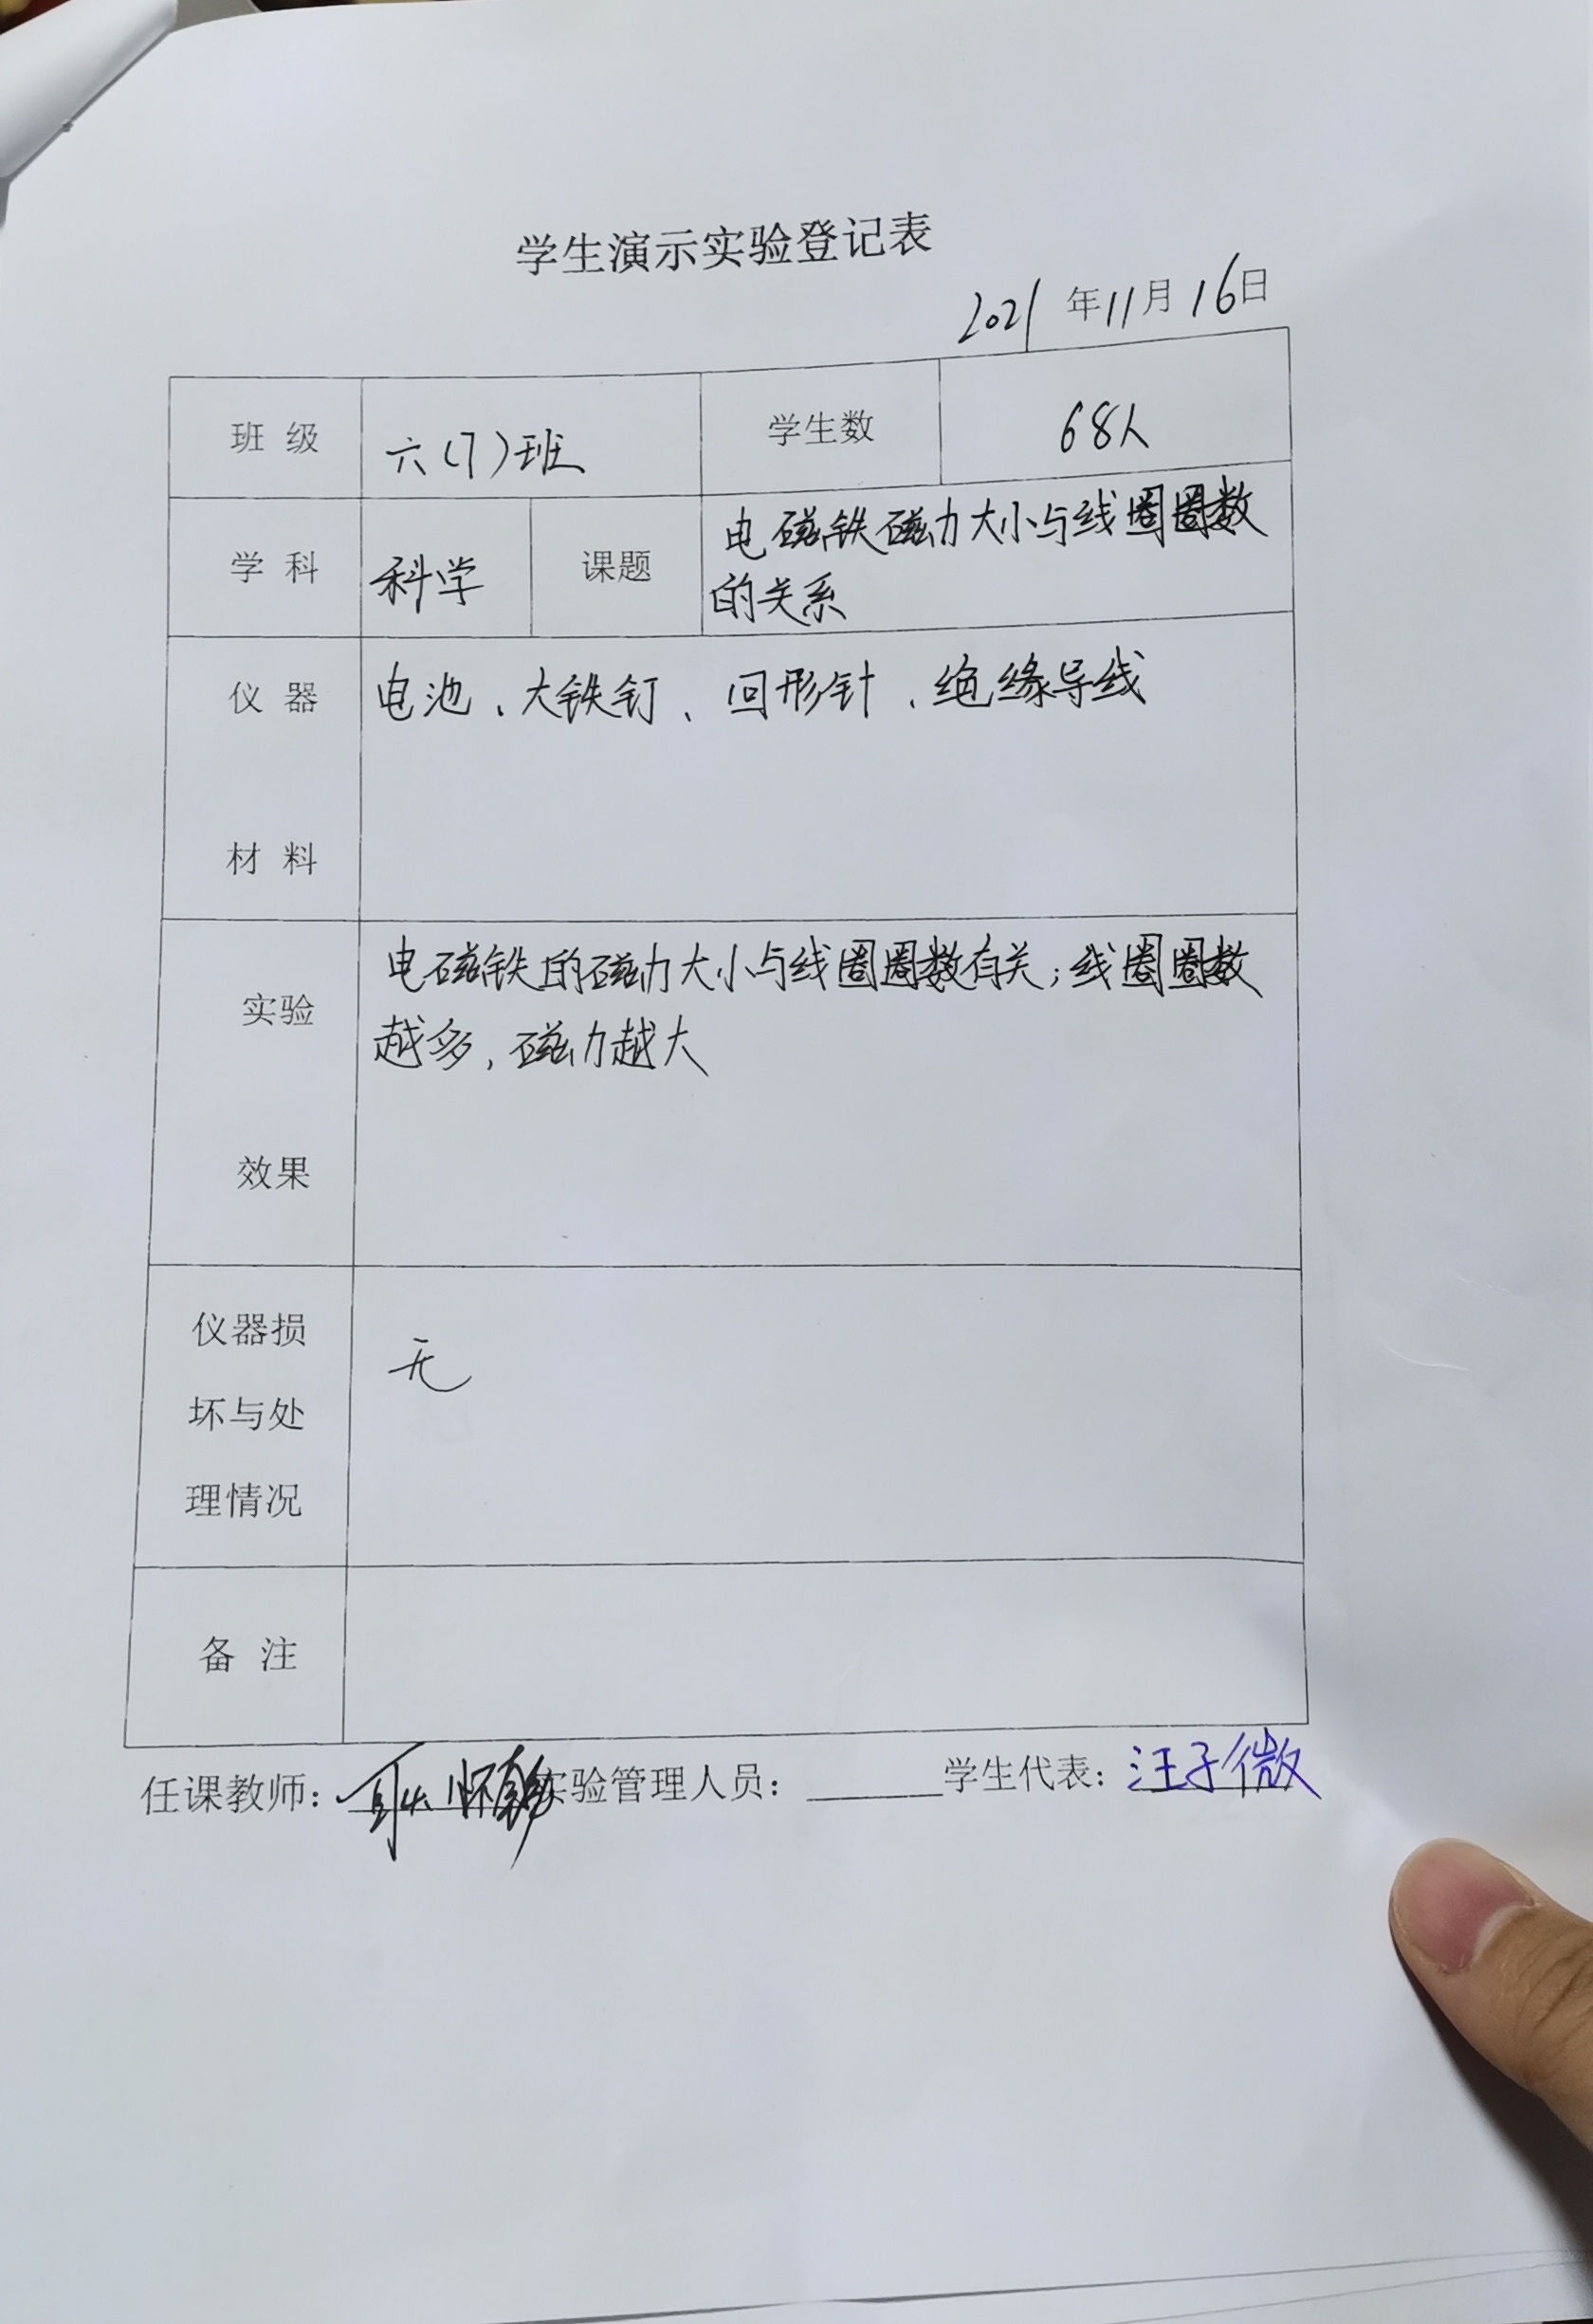 学生演示实验登记表
2021年11月16日
班级 六(7)班 学生数 68人
学科 科学 课题 电磁铁磁力大小与线圈圈数
的关系
仪器 电池、大铁钉、回形针、绝缘导线
材料
电磁铁的磁力大小与线圈圈数有关;线圈圈数
实验 越多,磁力越大
效果
仪器损
无
坏与处
理情况
备注
任课教师: 实验管理人员: 学生代表:汪子微